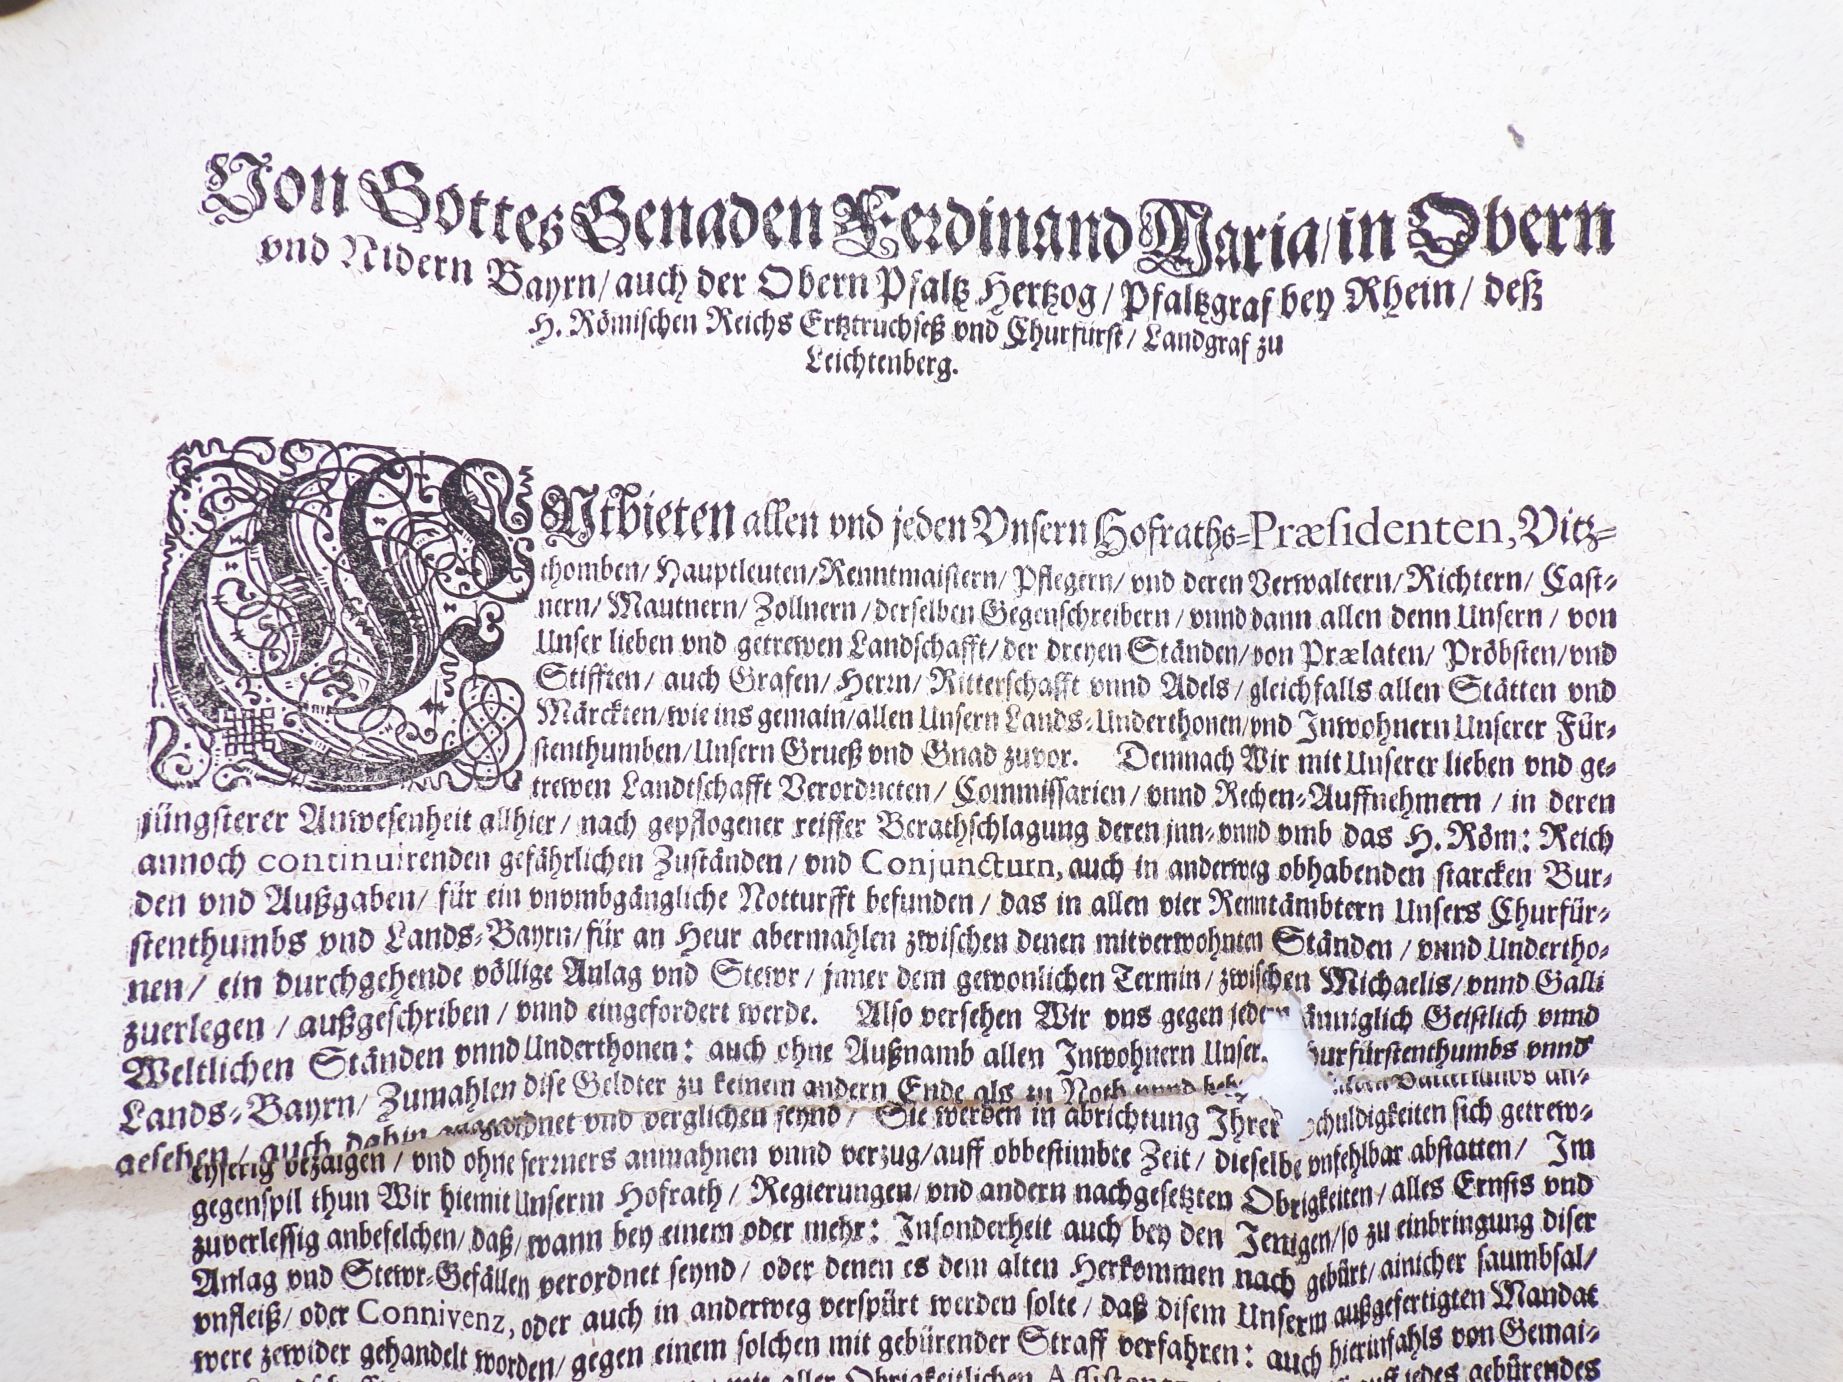 Von Gottes Genaden Ferdinand Maria/ in Obern
vnd Nidern Bayrn/ auch der Obern Pfaltz Hertzog/ Pfaltzgraf bey Rhein/ deß
H. Römischen Reichs Ertztruchseß vnd Churfürst/ Landgraf zu
Leichtenberg.
ENtbieten allen vnd jeden Vnsern Hofraths-Præsidenten, Vitz-
thomben/ Hauptleuten/ Renntmaistern/ Pflegern/ vnd deren Verwaltern/ Richtern/ Cast-
nern/ Mautnern/ Zollnern/ derselben Gegenschreibern/ vnnd dann allen denn Unsern/ von
Unser lieben vnd getrewen Landschafft/ der dreyen Ständen/ von Prælaten/ Pröbsten/ vnd
Stifften/ auch Grafen/ Herrn/ Ritterschafft vnnd Adels/ gleichfalls allen Stätten vnd
Märckten/ wie ins gemain/ allen Unsern Lands-Underthonen/ vnd Inwohnern Unserer Für-
stenthumben/ Unsern Grueß vnd Gnad zuvor. Demnach Wir mit Unserer lieben vnd ge-
trewen Landtschafft Verordneten/ Commissarien/ vnnd Rechen-Auffnehmern/ in deren
jüngsterer Anwesenheit allhier/ nach gepflogener reiffer Berathschlagung deren jnn- vnnd vmb das H. Röm: Reich
annoch continuirenden gefährlichen Zuständen/ vnd Conjuncturn, auch in anderweg obhabenden starcken Bur-
den vnd Außgaben/ für ein vnvmbgängliche Notturfft befunden/ das in allen vier Renntämbtern Unsers Churfür-
stenthumbs vnd Lands-Bayrn/ für an Heur abermahlen zwischen denen mitverwohnten Ständen/ vnnd Undertho-
nen/ ein durchgehende völlige Anlag vnd Stewr/ jnner dem gewonlichen Termin/ zwischen Michaelis/ vnnd Galli
zuerlegen/ außgeschriben/ vnnd eingefordert werde. Also versehen Wir vns gegen jeder änniglich Geistlich vnnd
Weltlichen Ständen vnnd Underthonen: auch ohne Außnamb allen Inwohnern Unser urfürstenthumbs vnnd
Lands-Bayrn/ Zumahlen dise Geldter zu keinem andern Ende als zu Noth vnnd
gesehen/ auch dahin angeordnet vnd verglichen seynd/ Sie werden in abrichtung Ihrer chuldigkeiten sich getrew-
eyferig bezaigen/ vnd ohne ferrners anmahnen vnnd verzug/ auff obbestimbte Zeit/ dieselbe vnfehlbar abstatten/ Im
gegenspil thun Wir hiemit Unserm Hofrath/ Regierungen/ vnd andern nachgesetzten Obrigkeiten/ alles Ernsts vnd
zuverlessig anbefelchen/ daß/ wann bey einem oder mehr: Insonderheit auch bey den Jenigen/ so zu einbringung diser
Anlag vnd Stewr-Gefällen verordnet seynd/ oder denen es dem alten Herkommen nach gebürt/ ainicher saumbsal/
vnfleiß/ oder Connivenz, oder auch in anderweg verspürt werden solte/ daß disem Unserm außgefertigten Mandat
were zewider gehandelt worden/ gegen einem solchen mit gebürender Straff verfahren: auch hierinfahls von Gemai-
aller Obrigkeitlichen auff jedes gebürendes